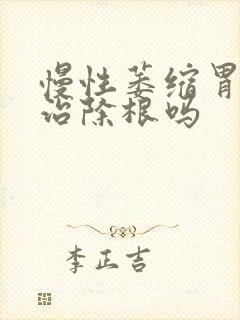 慢性萎缩胃
治除根吗
李正吉